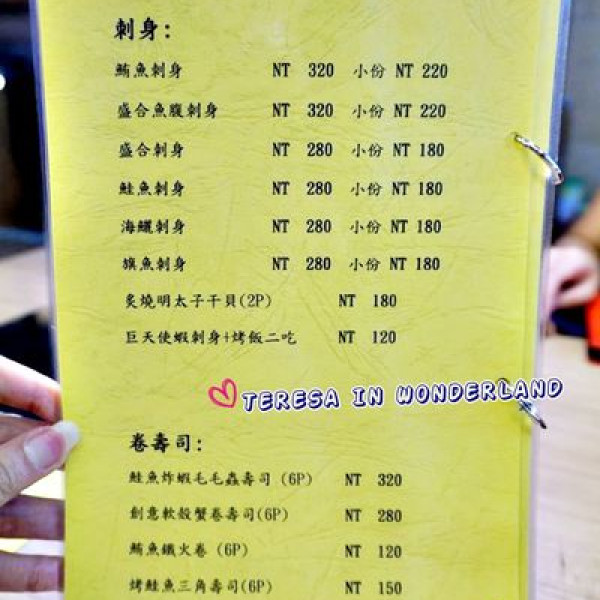 刺身:
鮪魚刺身 NT 320 小份 NT 220
盛合魚腹刺身 NT 320 小份 NT 220
盛合刺身 NT 280 小份 NT 180
鮭魚刺身 NT 280 小份 NT 180
海鱺刺身 NT 280 小份 NT 180
旗魚刺身 NT 280 小份 NT 180
炙燒明太子干貝(2P) NT 180
巨天使蝦刺身+烤飯二吃 NT 120
TERESA IN WONDERLAND
卷壽司:
鮭魚炸蝦毛毛蟲壽司 (6P) NT 320
創意軟殼蟹卷壽司(6P) NT 280
鮪魚鐵火卷 (6P) NT 120
烤鮭魚三角壽司(6P) NT 150